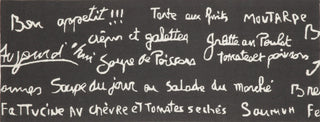 Bon appetit!!! Tarte aux fruits MOUTARDE
crêpes et galettes Gratin au Poulet
Aujourd'hui Soupe de Poissons tomates et poivrons
Soupe du jour ou salade du marché
FATTUCINE AU CHÈVRE ET TOMATES SECHÉS SAUMUR